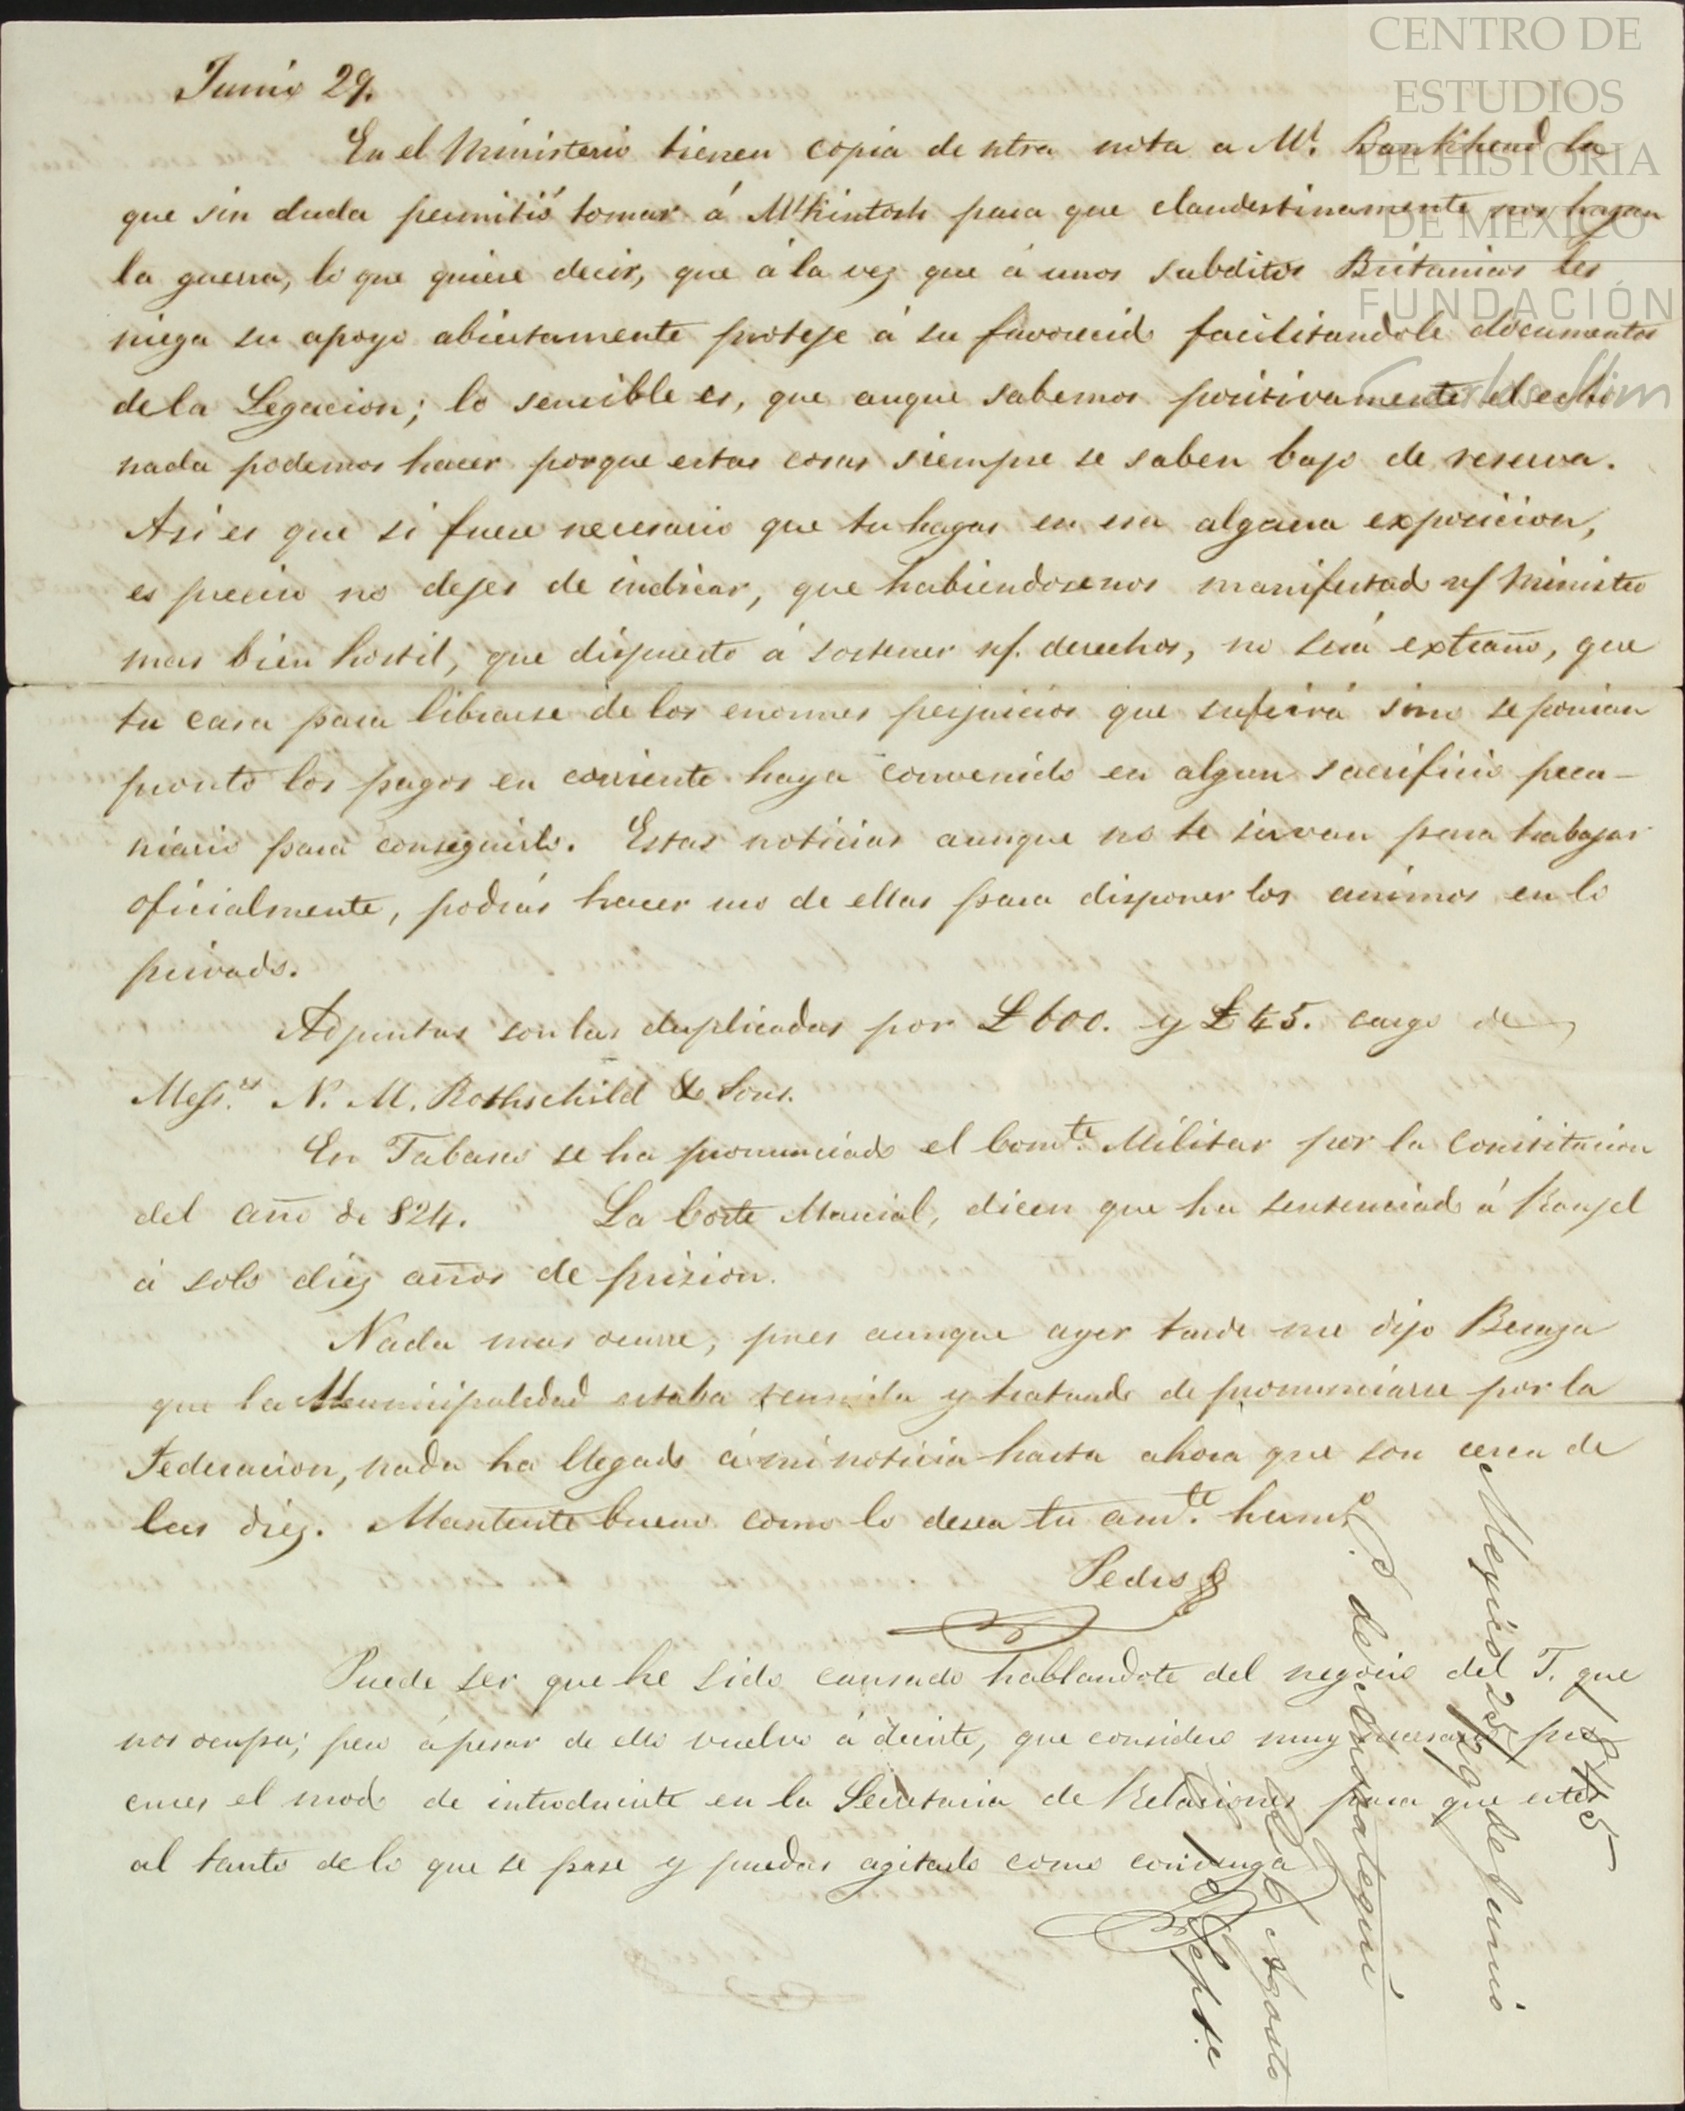 Junio 29.
En el Ministerio tienen copia de ntra nota a Mr. Bankhead la
que sin duda permitió tomar á McKintosh para que clandestinamente nos hagan
la guerra, lo que quiere decir, que á la vez que á unos subditos Britanicos les
niega su apoyo abiertamente proteje á su favorecido facilitandole documentos
de la Legacion; lo sencible es, que auque sabemos positivamente el echo
nada podemos hacer porque estas cosas siempre se saben bajo de reserva.
Asi es que si fuere necesario que tu hagas en esa alguna exposicion,
es preciso no dejes de indicar, que habiendosenos manifestado nf Ministro
mas bien hostil, que dispuesto á sostener nf. derechos, no será extraño, que
tu casa para librarse de los enormes perjuicios que sufrirá sino se ponian
pronto los pagos en corriente haya convenido en algun sacrificio pecu-
niario para conseguirlo. Estas noticias aunque no te sirvan para trabajar
oficialmente, podrás hacer uso de ellas para disponer los animos en lo
privado.
Adjuntas son las duplicadas por £600. y £45. cargo de
Messrs. N. M. Rothschild & Sons.
En Tabasco se ha pronunciado el Comte. Militar por la Constitucion
del año de 824. La Corte Marcial, dicen que ha sentenciado á Ranjel
á solo diez años de prision.
Nada mas ocurre, pues aunque ayer tarde me dijo Beraza
que la Municipalidad estaba reunida y tratando de pronunciarse por la
Federacion, nada ha llegado á mi noticia hasta ahora que son cerca de
las diez. Mantente bueno como lo desea tu amte. hermo.
Pedro
Puede ser que he sido cansado hablandote del negocio del T. que
nos ocupa; pero ápesar de ello vuelvo á decirte, que considero muy necesario pro
cures el modo de introducirte en la Secretaria de Relaciones para que estes
al tanto de lo que se pase y puedas agitarlo como convenga
1845
Megico 25/29 de Junio
P. de Ansoategui
Agosto
Sepse
CENTRO DE
ESTUDIOS
DE HISTORIA
DE MEXICO
FUNDACIÓN
Carlos Slim